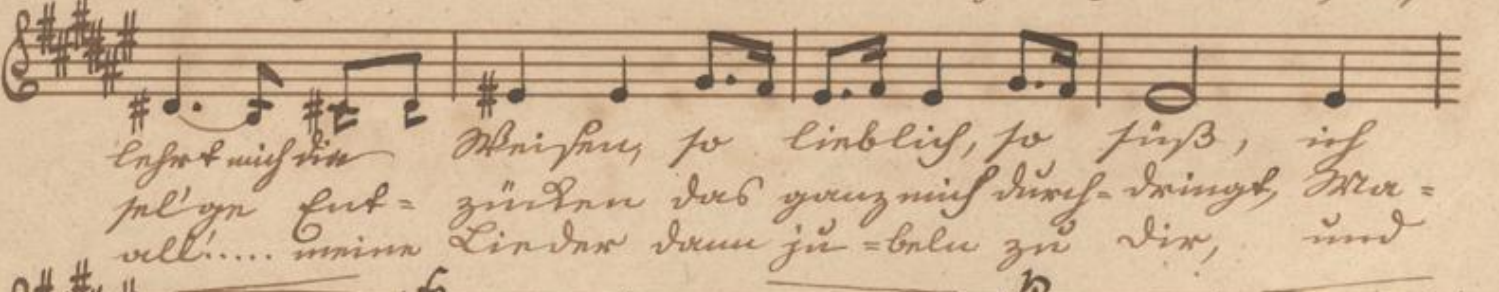 lehrt mich die Weisen, so lieblich, so süß, ich
sel'ge Ent= zücken das ganz mich durch- dringt, Ma=
all'..... meine Lieder dann ju =beln zu dir, und